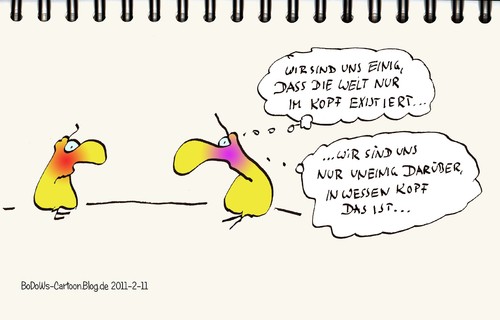 WIR SIND UNS EINIG,
DASS DIE WELT NUR
IM KOPF EXISTIERT...
...WIR SIND UNS
NUR UNEINIG DARÜBER,
IN WESSEN KOPF
DAS IST...
BoDoWs-Cartoon.Blog.de 2011-2-11